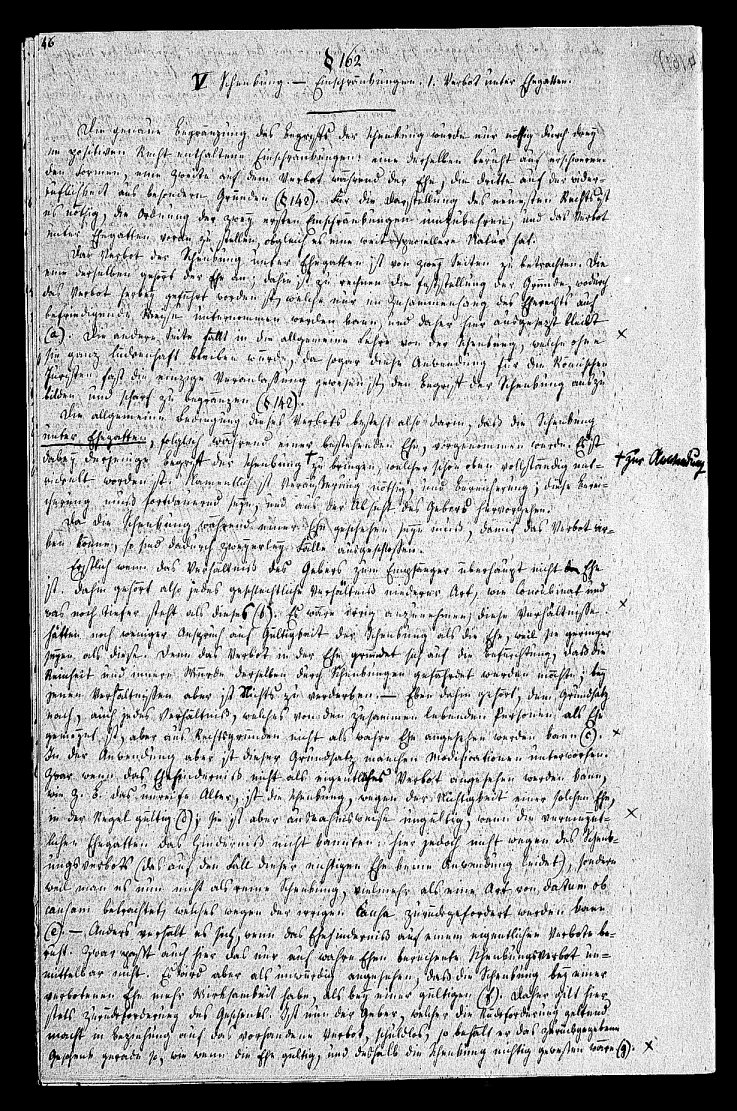 46
§ 162
V Schenkung. — Einschränkungen. 1. Verbot unter Ehegatten.
Die genaue Begränzung des Begriffs der Schenkung wurde nur nöthig durch drey
im positiven Recht enthaltene Einschränkungen: eine derselben beruht auf erschweren-
den Formen, eine zweite auf dem Verbot während der Ehe, die dritte auf der wider-
ruflichkeit aus besondern Gründen (§ 142). Für die Darstellung des neuesten Rechts ist
es nöthig, die Ordnung der zwey ersten Einschränkungen umzukehren, und das Verbot
unter Ehegatten voran zu stellen, obgleich es eine weit speciellere Natur hat.
Das Verbot der Schenkung unter Ehegatten ist von zwey Seiten zu betrachten. Die
eine derselben gehört der Ehe an; dahin ist zu rechnen die Feststellung der Gründe, wodurch
das Verbot herbey geführt worden ist, welche nur im Zusammenhang des Eherechts auf
befriedigende Weise unternommen werden kann, und daher hier ausgesetzt bleibt
(a). Die andere Seite fällt in die allgemeine Lehre von der Schenkung, welche ohne
sie ganz lückenhaft bleiben würde, da sogar diese Anwendung für die Römischen
Juristen fast die einzige Veranlassung gewesen ist, den Begriff der Schenkung auszu
bilden und scharf zu begränzen (§ 142).
Die allgemeine Bedingung dieses Verbots besteht also darin, daß die Schenkung
unter Ehegatten, folglich während einer bestehenden Ehe, vorgenommen werde. Es ist
dabey derjenige Begriff der Schenkung † zu bringen, welcher schon oben vollständig ent-
† zur Anwendung
wickelt worden ist. Namentlich ist Veräußerung nöthig, und Bereicherung; diese Berei-
cherung muß fortdauernd seyn, und aus der Absicht des Gebers hervorgehen.
Da die Schenkung während einer Ehe geschehen seyn muß, damit das Verbot wir-
ken könne, so sind dadurch zweyerley Fälle ausgeschlossen.
Erstlich wenn das Verhältniß des Gebers zum Empfänger überhaupt nicht Ehe
ist. Dahin gehört also jedes geschlechtliche Verhältniß niederer Art, wie Concubinat und
was noch tiefer steht als dieses (b). Es wäre irrig anzunehmen, diese Verhältnisse
hätten noch weniger Anspruch auf Gültigkeit der Schenkung als die Ehe, weil sie geringer
seyen als diese. Denn das Verbot in der Ehe gründet sich auf die Befürchtung, daß die
Reinheit und innere Würde derselben durch Schenkungen gefährdet werden möchte; bey
jenen Verhältnissen aber ist Nichts zu verderben. — Eben dahin gehört, dem Grundsatz
nach, auch jedes Verhältniß, welches von den zusammen lebenden Personen als Ehe
gemeynt ist, aber aus Rechtsgründen nicht als wahre Ehe angesehen werden kann (c).
In der Anwendung aber ist dieser Grundsatz manchen Modificationen unterworfen.
Zwar wenn das Ehehinderniß nicht als eigentliches Verbot angesehen werden kann,
wie z. B. das unreife Alter, ist die Schenkung, wegen der Nichtigkeit einer solchen Ehe,
in der Regel gültig (d); sie ist aber ausnahmsweise ungültig, wenn die vermeynt-
lichen Ehegatten das Hinderniß nicht kannten: hier jedoch nicht wegen des Schenk-
ungsverbots (das auf den Fall dieser nichtigen Ehe keine Anwendung leidet), sondern
weil man es nun nicht als reine Schenkung, vielmehr als eine Art von datum ob
causam betrachtet, welches wegen der irrigen Causa zurückgefordert werden kann
(e). — Anders verhält es sich, wenn das Ehehinderniß auf einem eigentlichen Verbote be-
ruht. Zwar paßt auch hier das nur auf wahre Ehen berechnete Schenkungsverbot un-
mittelbar nicht. Es wird aber als unwürdig angesehen, daß die Schenkung bey einer
verbotenen Ehe mehr Wirksamkeit habe, als bey einer gültigen (f). Daher gilt hier
stets Zurückforderung des Geschenks. Ist nun der Geber, welcher die Rückforderung geltend
macht in Beziehung auf das vorhandene Verbot, schuldlos, so behält er das zurückgegebene
Geschenk gerade so, wie wenn die Ehe gültig, und deshalb die Schenkung nichtig gewesen wäre (g).